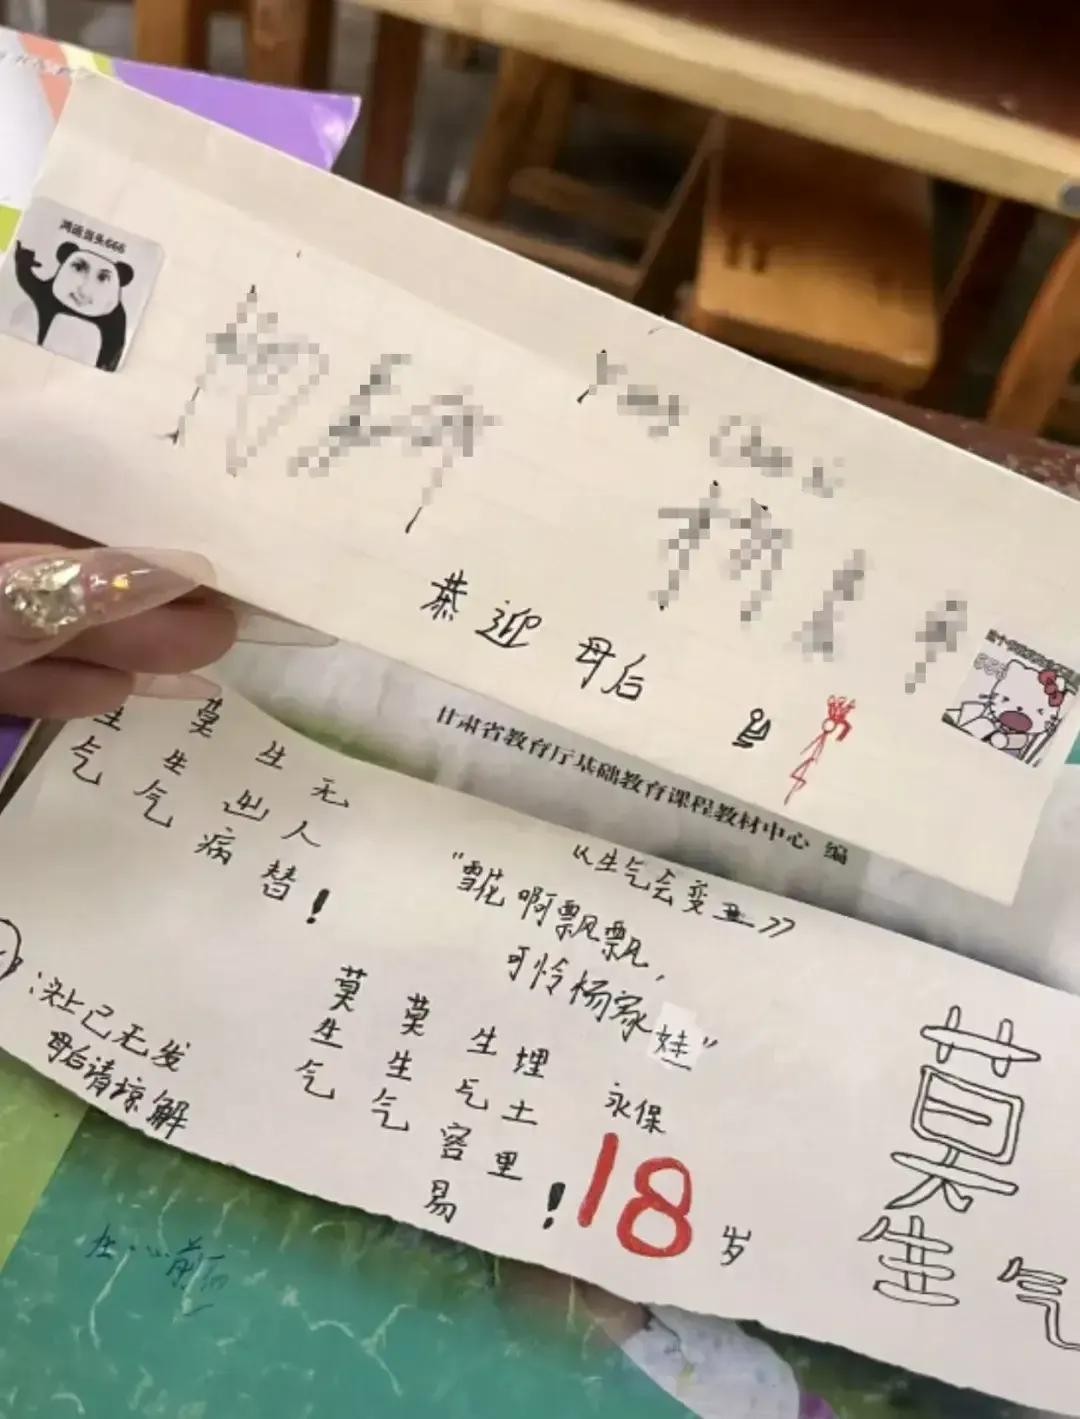 鸿运当头666
恭迎 母后
666
甘肃省教育厅基础教育课程教材中心 编
生气
莫生气
生出病
无人替！
《生气会变丑》
“雪花啊飘飘，
可怜杨家娃”
:头上已无发
母后请谅解
莫生气
莫生气
生气容易
埋土里！
永保
18岁
莫生气